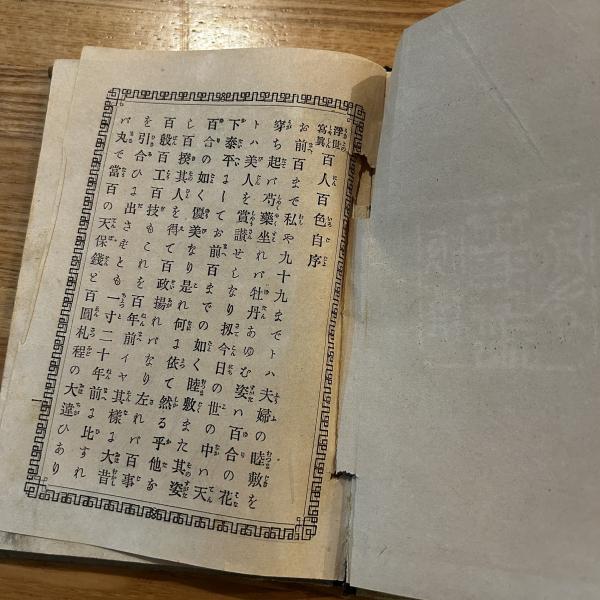 浮世寫眞 百人百色自序
お前百まで私や九十九までトハ夫婦の睦敷を
穿ち起バ芍藥坐れバ牡丹あゆむ姿ハ百合の花
トハ美人を賞讃せしなり扨今日の世の中ハ天
下泰平よしてお前百までの如く睦敷また其姿
百合の如く優美なり是れ何よ依て然る乎他な
し百揆其人を得て百政揚れバなり左れバ百事
百般百工百技もこれを百年前イヤ其樣よ大昔
を引合ひよ出さずとも一寸二十年前よ比すれ
バ丸で當百の天保錢と百圓札程の大違ひあり